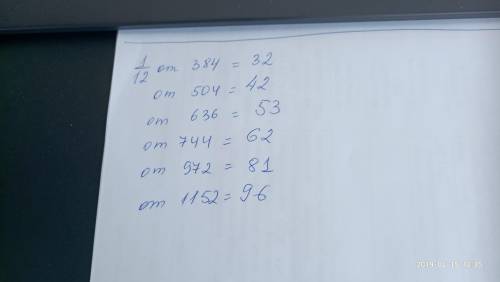 1/12 от 384 = 32
от 504 = 42
от 636 = 53
от 744 = 62
от 972 = 81
от 1152 = 96